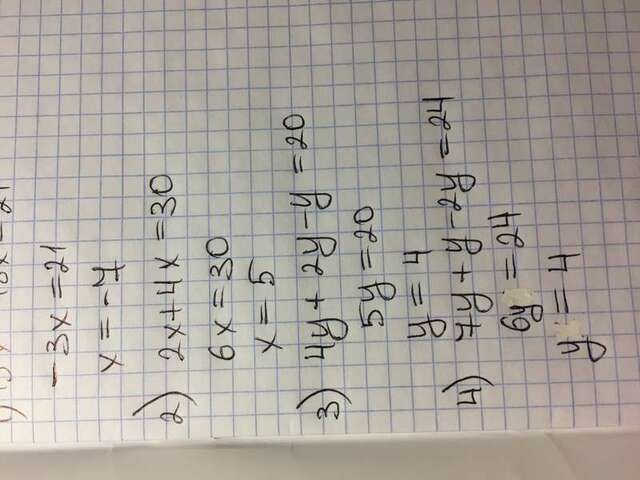 -3x=21
x=-7
2) 2x+4x=30
6x=30
x=5
3) 4y+2y-y=20
5y=20
y=4
4) 7y+y-2y=24
6y=24
y=4